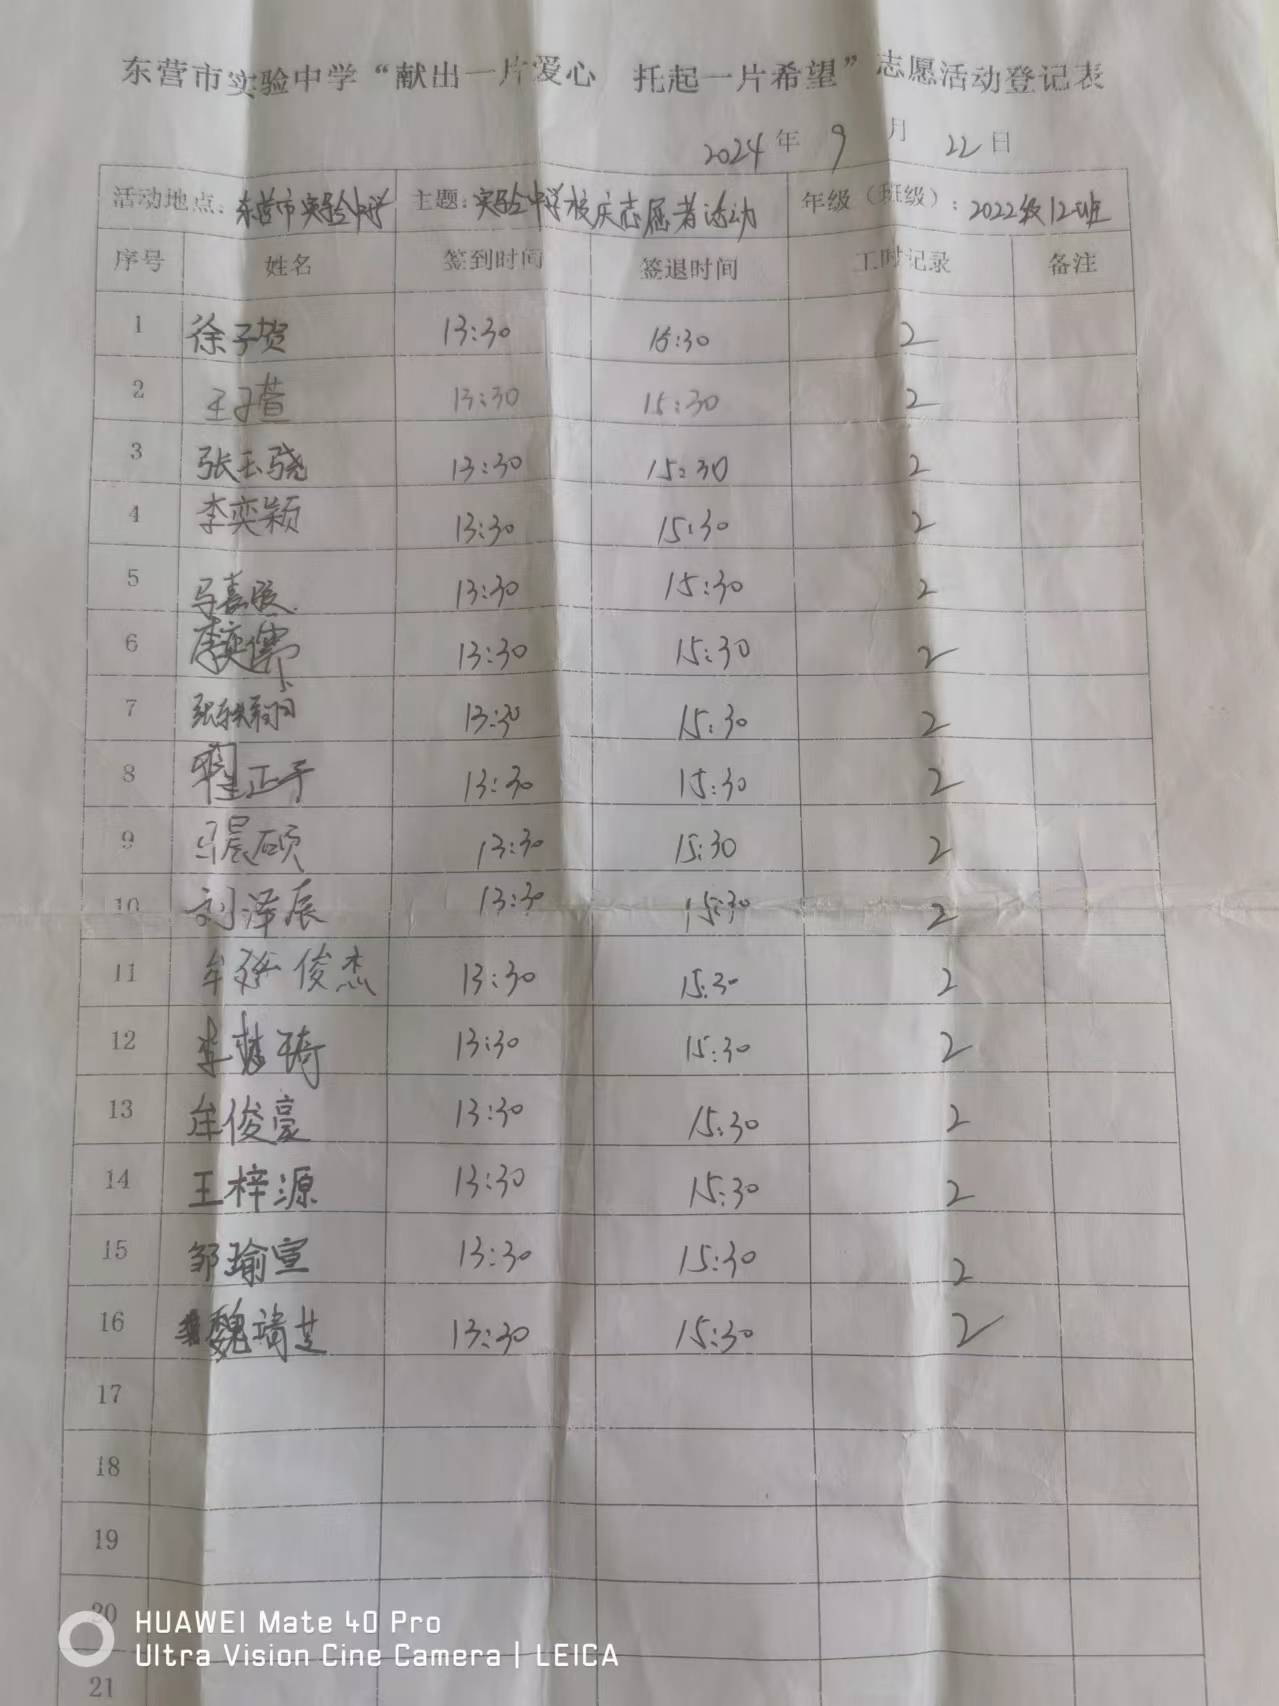 东营市实验中学“献出一片爱心 托起一片希望”志愿活动登记表
2024年 9 月 22日
活动地点：东营市实验中学 主题：实验中学校庆志愿者活动 年级（班级）：2022级12班
序号 姓名 签到时间 签退时间 工时记录 备注
1 徐子贺 13:30 15:30 2
2 王子萱 13:30 15:30 2
3 张玉骁 13:30 15:30 2
4 李奕颖 13:30 15:30 2
5 马嘉 13:30 15:30 2
6 李奕儒 13:30 15:30 2
7 张 13:30 15:30 2
8 正于 13:30 15:30 2
9 马晨硕 13:30 15:30 2
10 刘泽辰 13:30 15:30 2
11 牟 俊杰 13:30 15:30 2
12 李梦琦 13:30 15:30 2
13 牟俊豪 13:30 15:30 2
14 王梓源 13:30 15:30 2
15 邹瑜宣 13:30 15:30 2
16 魏靖芝 13:30 15:30 2
17
18
19
20
21
HUAWEI Mate 40 Pro
Ultra Vision Cine Camera | LEICA